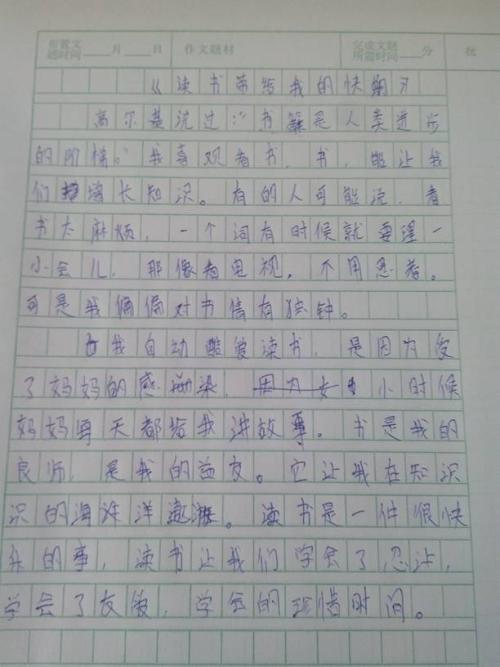 布置文题时间 月 日 作文题材 完成文题所需时间 分 批
《读书带给我的快乐》
高尔基说过:“书籍是人类进步
的阶梯。”我喜观看书,书,能让我
们增长知识。有的人可能说,看
书太麻烦,一个词有时候就要理一
小会儿,那像看电视,不用思考。
可是我偏偏对书情有独钟。
我自动酷爱读书,是因为受
了妈妈的感染,小时候
妈妈每天都给我讲故事。书是我的
良师,是我的益友。它让我在知识
识的海洋遨游。读书是一件很快
乐的事,读书让我们学会了忍让,
学会了友爱,学会的珍惜时间。